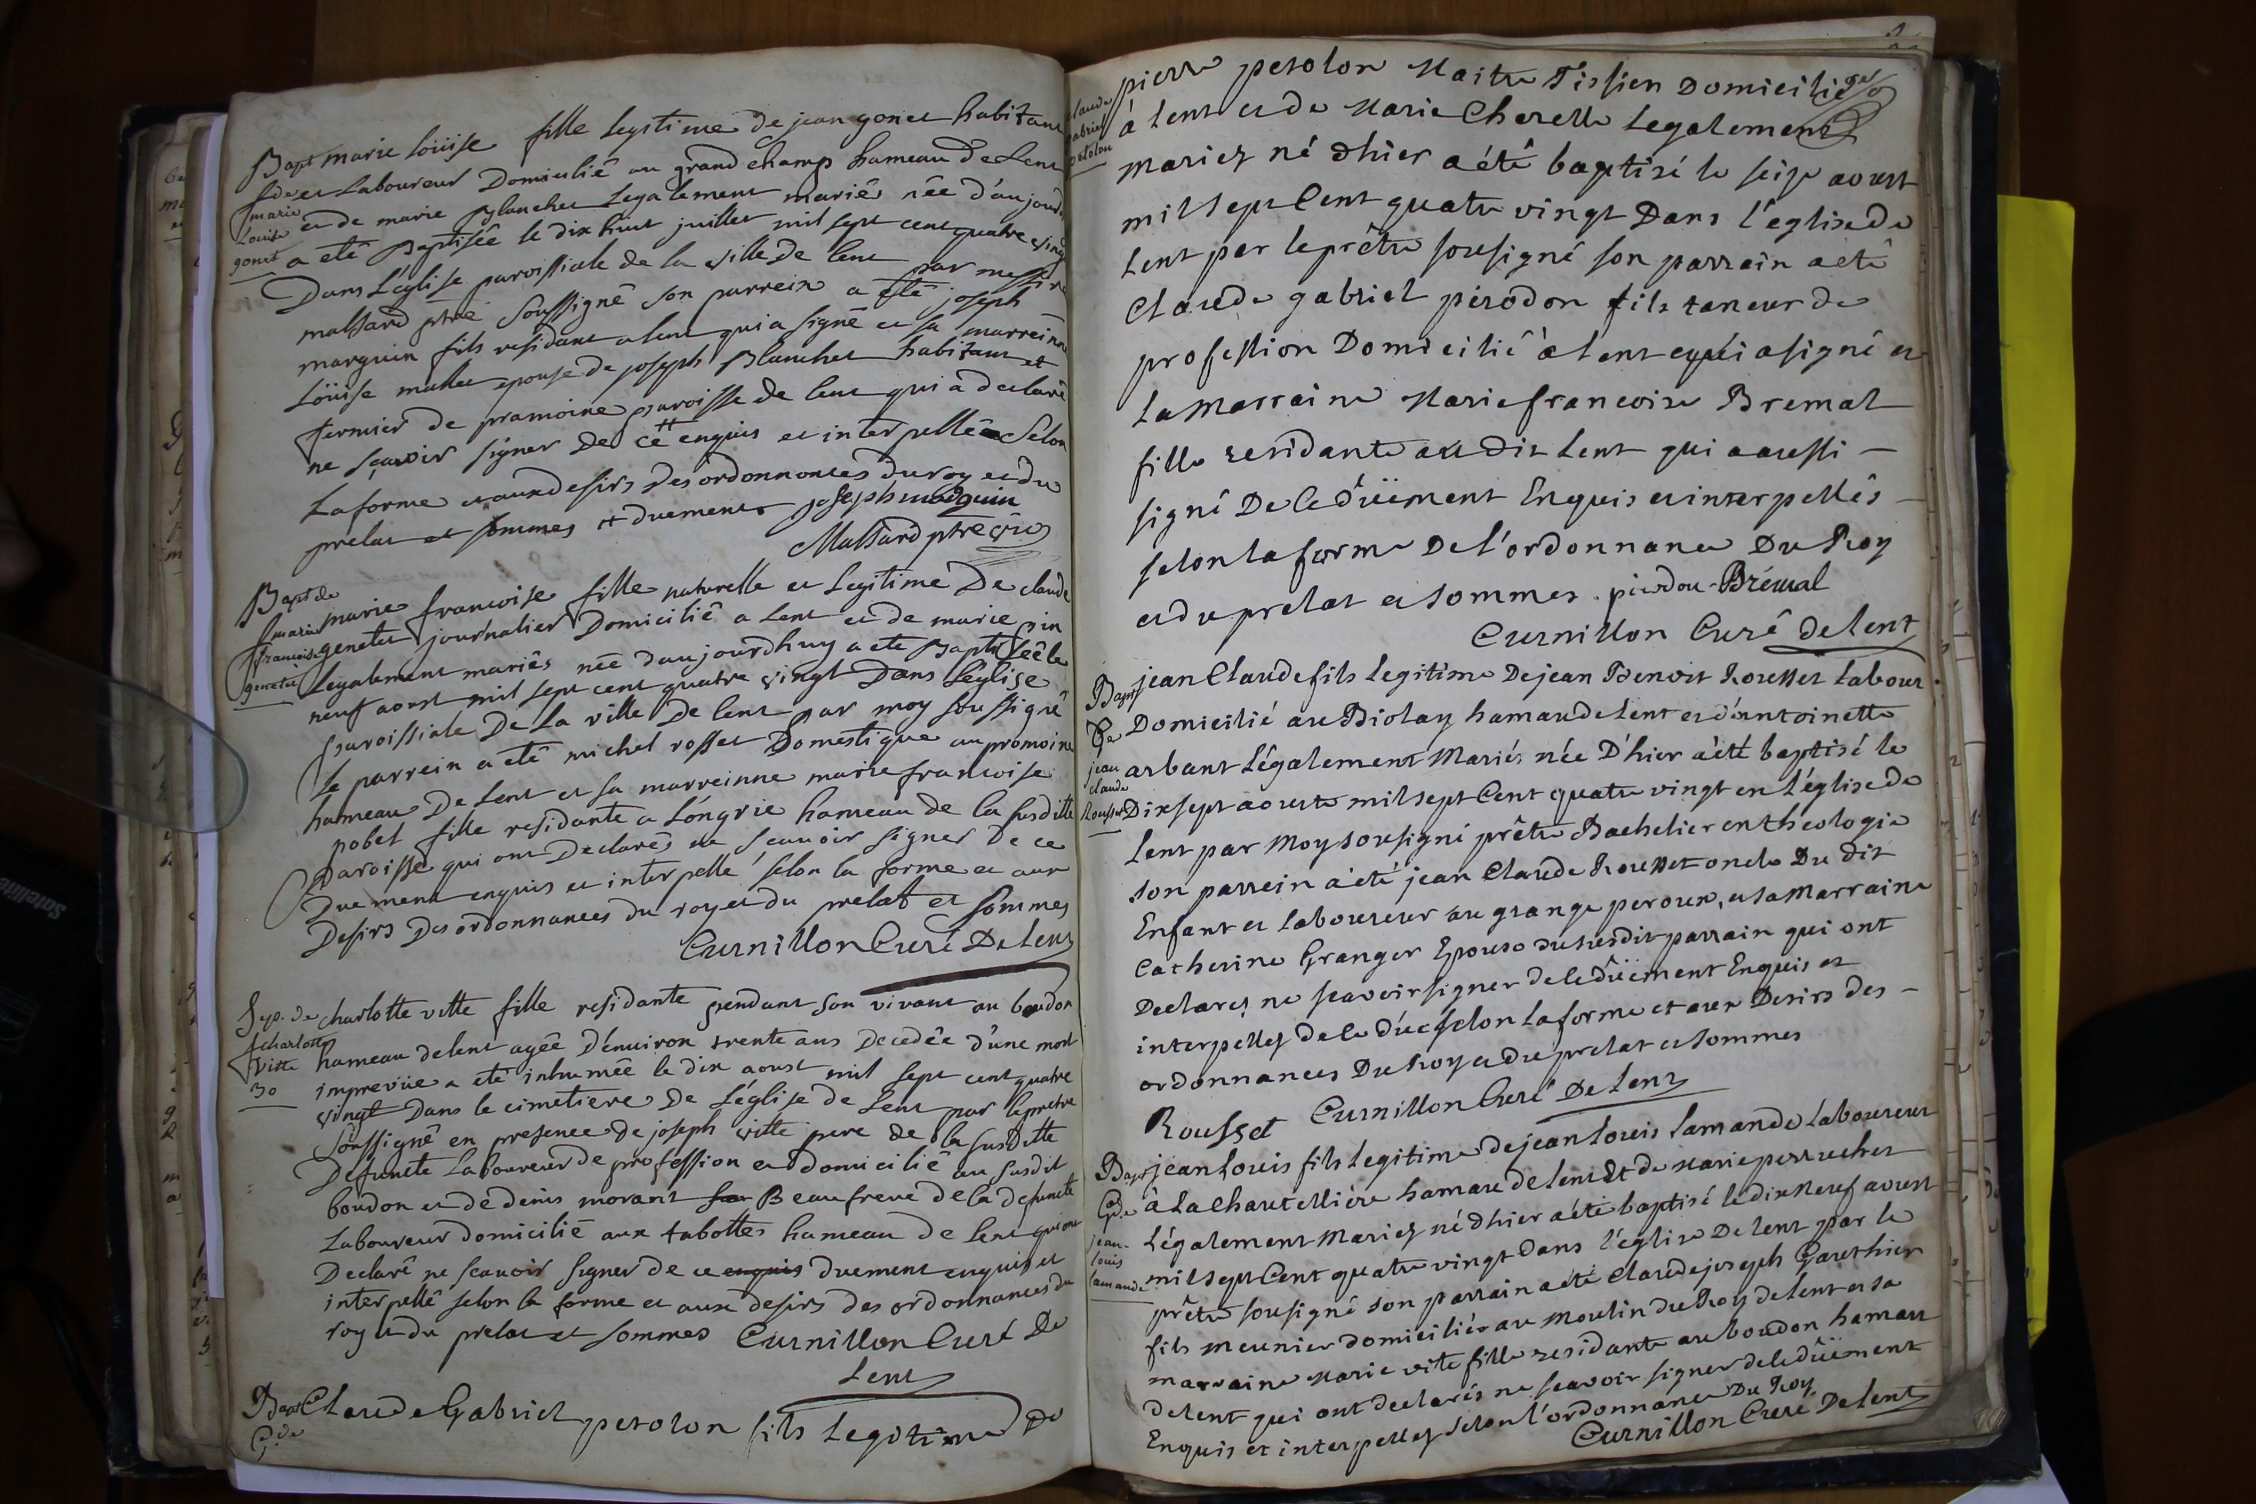 Bapt marie loüise fille legitime de jean gonet habitant
de et Laboureur Domicilié au grand champ hameau de Lent
marie Louise gonet
et de marie Blanchet Legalement mariés née d'aujourd
a eté Baptisée le dix huit juillet mil sept cent quatre vingt
Dans L'église paroissiale de la ville de lent par messire
massard ptre soussigné son parrein a été joseph
marguin fils residant a lent qui a signé et sa marreinne
Loüise epouse de joseph Blanchet habitant et
fermier de pramoine paroisse de lent qui a declaré
ne sçavoir signer de ce enquis et interpellée Selon
La forme et aux desirs des ordonnances du roy et du
prelat et sommes et duement joseph marguin
Massard ptre vic
Bapt de
marie francoise genetet
marie francoise fille naturelle et Legitime De claude
genetet journalier Domicilié a Lent et de marie pin
Legalement mariés née daujourdhuy a ete Baptisée le
neuf aoust mil sept cent quatre vingt Dans L'église
paroissiale De La ville De lent par moy soussigné
Le parrein a eté michel rosset Domestique au promoine
hameau De Lent et sa marreinne marie francoise
pobel fille residante a Longrie hameau de la susditte
paroisse qui ont Declarés ne sçavoir signer De ce
Duement enquis et interpellé selon la forme et aux
Desirs Des ordonnances du roy et du prelat et sommes
Curnillon Curé De Lent
Sep. de charlotte vitte 30
charlotte vitte fille residante pendant son vivant au boudon
hameau de lent agée D'environ trente ans Decedée d'une mort
imprevüe a eté inhumée le dix aoust mil sept cent quatre
vingt Dans le cimetiere De L'église de Lent par le pretre
soussigné en presence de joseph vitte pere de la susditte
Defuncte Laboureur de profession et domicilié au susdit
boudon et de denis morant son Beaufrere de la defuncte
Laboureur domicilié aux tabottes hameau de Lent qui ont
Declaré ne sçavoir signer de ce enquis duement enquis et
interpellé selon la forme et aux desirs des ordonnances du
roy et du prelat et sommes Curnillon Curé De
Lent
Bapt de
Claude Gabriel perolon fils Legitime De
claude gabriel perolon
pierre perolon Maitre Tissien Domicilié
à Lent et de Marie Cherelle Legalement
mariez né dhier a été baptisé le seize aoust
mil sept Cent quatre vingt Dans l'église de
Lent par le prêtre sousigné son parrain a été
Claude gabriel pérodon fils taneur de
profession Domicilié à Lent et qui a signé et
La marraine Marie francoise Bremal
fille residante au dit Lent qui a aussi –
signé De Ce dûëment Enquis et interpellés –
selon la forme De l'ordonnance Du Roy
et du prelat et sommes . pierdon Brémal
Curnillon Curé de Lent
Bapt De jean claude Rousset
jean Claude fils Legitime De jean Benoit Rousset Labour
Domicilié au Biolay hamau de Lent et d'antoinette
arbant Légalement Mariés née D'hier a été baptisé le
Dix sept aouste mil sept Cent quatre vingt en L'église de
Lent par Moy sousigné prêtre Bachelier en theologie
son parrein a été jean Claude Rousset oncle Du dit
Enfant et Laboureur au grange peroux, et sa Marraine
Catherine Granger Epouse du susdit parrain qui ont
Declarez ne scavoir signer de ce dûëment Enquis et
interpellez de ce duë selon La forme et aux Desirs des –
ordonnances Du Roy et du prelat et sommes
Rousset Curnillon Curé De Lent
Bapt de jean-louis lamande
jean Louis fils Legitime de jean Louis Lamande Laboureur
à La Chatelliére hamau de lent Et de Marie perruchet
Légalement Mariez né dhier a été baptisé le dix Neuf aoust
mil sept Cent quatre vingt dans l'église De Lent par le
prêtre sousigné son parrain a été Claude joseph Gauthier
fils meunier domiciliés au Moulin du Roy de Lent et sa
marraine Marie vite fille residante au boudon hamau
de Lent qui ont declarés ne scavoir signer de ce dûëment
Enquis et interpellez selon l'ordonnance Du Roy
Curnillon Curé De Lent